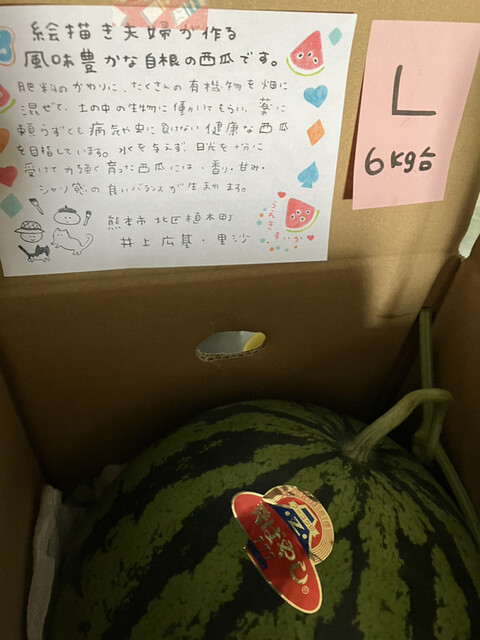 絵描き夫婦が作る
風味豊かな自根の西瓜です。
肥料のかわりに、たくさんの有機物を畑に
混ぜて、土の中の生物に働いてもらい、薬に
頼らずとも病気や虫に負けない健康な西瓜
を目指しています。水を与えず、日光を十分に
受けて力強く育った西瓜には、香り・甘み・
シャリ感の良いバランスが生まれます。
熊本市北区植木町
井上広基・里沙
うえき
すいか
L
6kg台